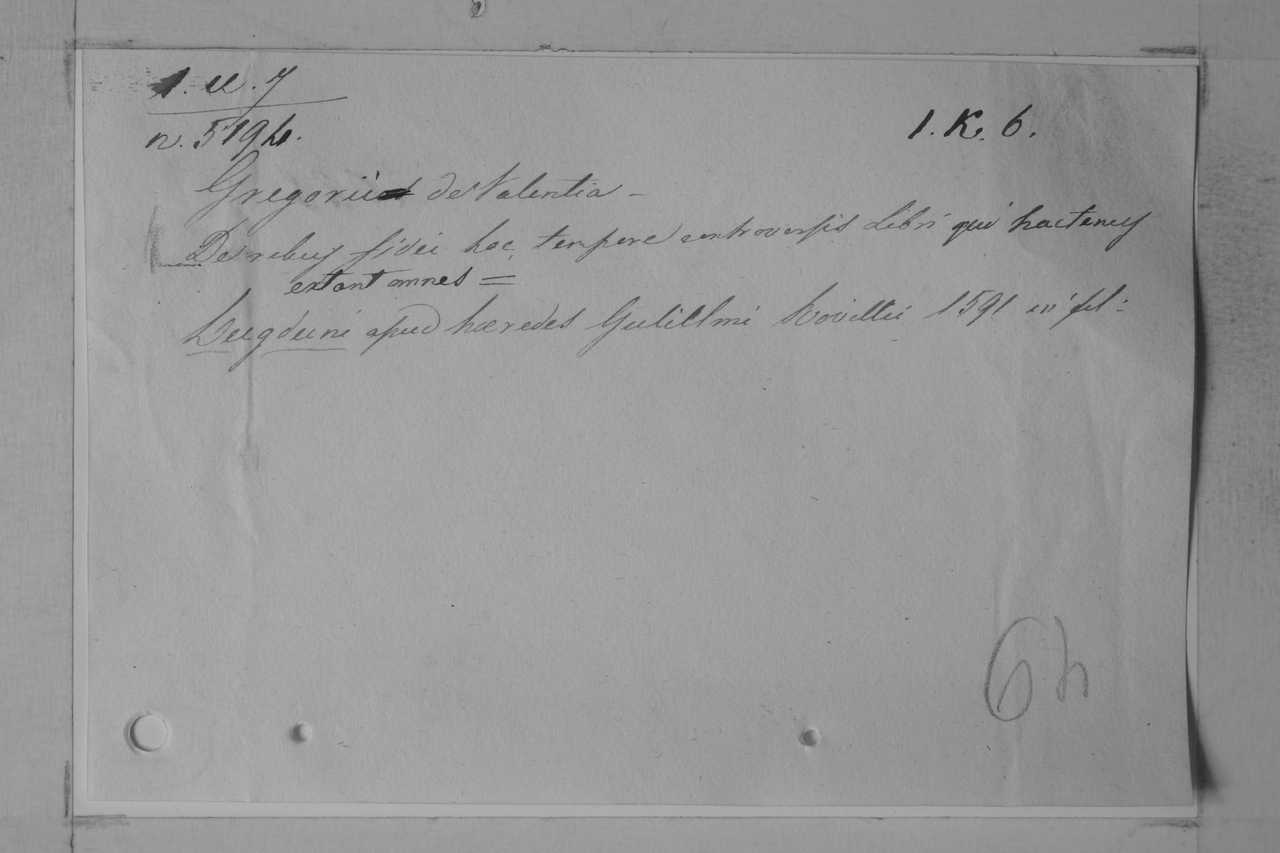 1. u. 7
n. 5194.
1. K. 6.
Gregorii de Valentia -
De rebus fidei hoc tempore controversis Libri qui hactenus
extant omnes =
Lugduni apud hæredes Gulillmi Rovillii 1591 in fol:
64